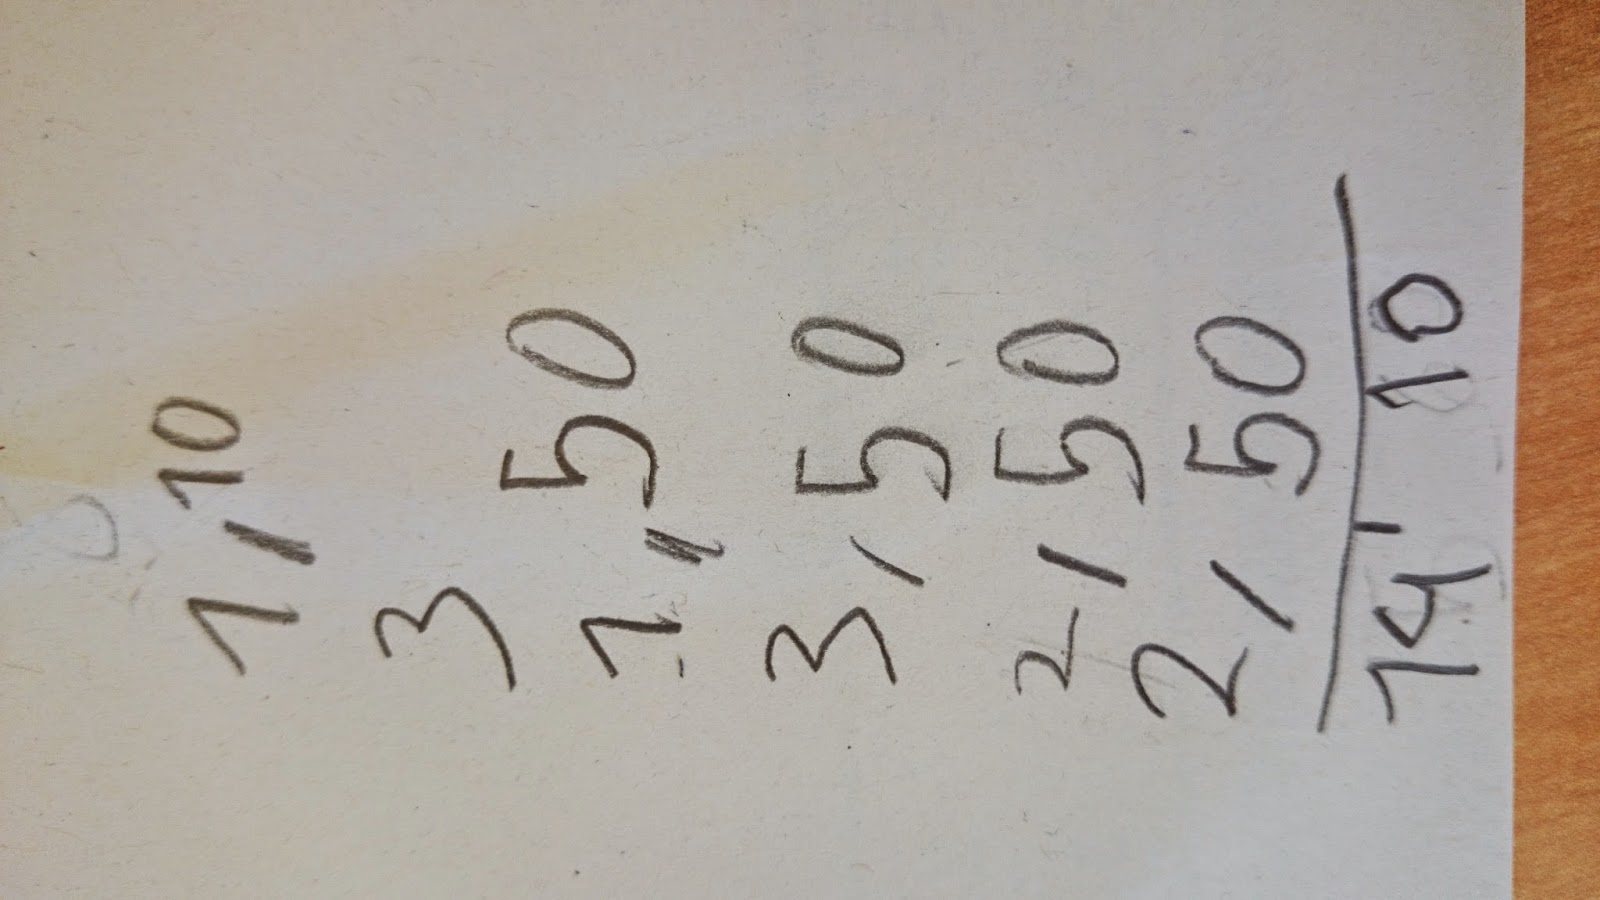 1,10
3
1,50
3,50
2,50
2,50
14'10